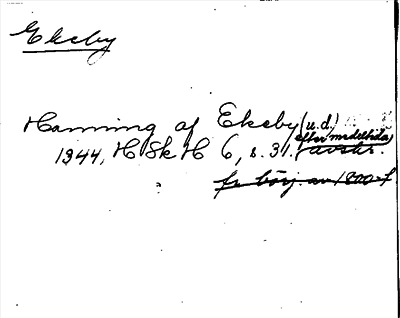 Ekeby
Hamning af Ekeby (u.d.)
efter medeltida
1344, HSkH 6, s. 31. avskr.
fr börj. av 1800-t.